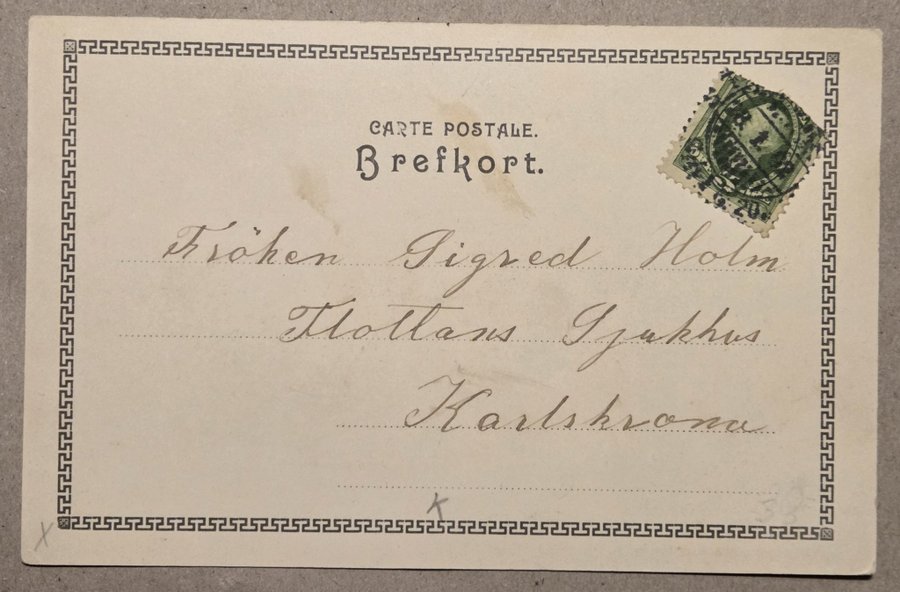 CARTE POSTALE.
Brefkort.
Fröken Sigred Holm
Flottans Sjukhus
Karlskrona
K
X